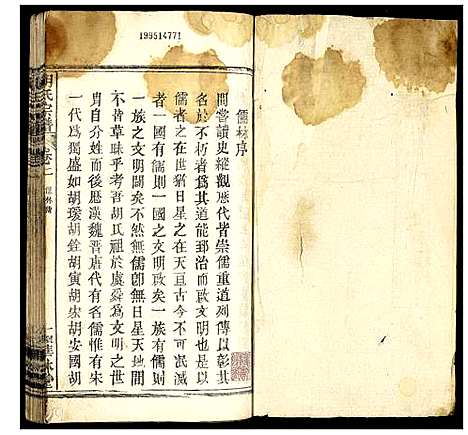 199514771
儒林序
間嘗讀史縱觀歷代者崇儒重道列傳以彰其
名於不朽者爲其道能致治而啟文明也是以
儒者之在世猶日星之在天亘古今不可泯滅
者一國有儒則一國之文明啟矣一族有儒則
一族之文明闢矣不然無儒卽無日星天地
不昔草昧乎考吾胡氏祖於虞舜爲文明之世
冑自分姓而後歷漢魏晉唐代有名儒惟有宋
一代爲獨盛如胡瑗胡銓胡寅胡宏胡安國胡
胡氏宗譜
卷二
儒林